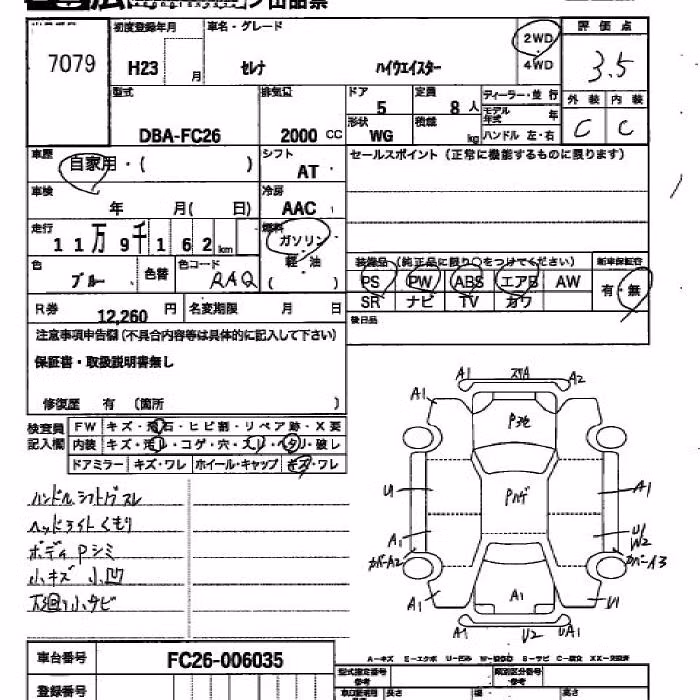 出品票
初度登録年月 車名・グレード 2WD 評価点
7079 H23 月 セレナ ハイウエイスター 4WD 3.5
型式 排気量 ドア 定員 ディーラー・並行 外装 内装
5 8人 モデル年式 年
DBA-FC26 2000 CC 形状 WG 積載 kg ハンドル 左・右 C C
車歴 自家用・( ) シフト AT セールスポイント(正常に機能するものに限ります)
車検 年 月( 日) 冷房 AAC
走行 11万9千162km 燃料 ガソリン
軽・油
( )
装備品(純正品に限り○をつけてください) 新車保証書
色 ブルー 色替 色コード RAQ
PS PW ABS エアB AW 有・無
SR ナビ TV カワ
R券 12,260円 名変期限 月 日 後日品
注意事項申告欄(不具合内容等は具体的に記入して下さい)
保証書・取扱説明書無し
修復歴 有 (箇所 )
検査員記入欄 FW キズ・飛石・ヒビ割・リペア跡・X要
内装 キズ・汚レ・コゲ・穴・スレ・ヘタリ・破レ
ドアミラー キズ・ワレ ホイール・キャップ キズ・ワレ
ハンドル.シフトグスレ
ヘッドライトくもり
ボディPシミ
小キズ 小凹
下廻り小サビ
A1 A2
A1
P
Pハゲ
U A1
A1 U1
W2
カバーA2 カバーA3
A1 A1 U1
A1 U2 UA1
A-キズ E-エクボ U-凹み S-サビ C-腐食 XX-交換済
車台番号 FC26-006035
型式指定番号 参考 類別区分番号 参考
登録番号 長さ 幅 高さ